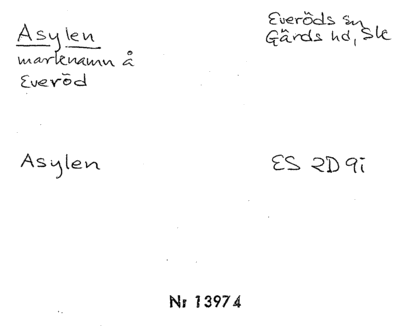 Asylen
marknamn å
Everöd
Everöds sn
Gärds hd, Sk
Asylen
ES 2D 9i
Nr 13974